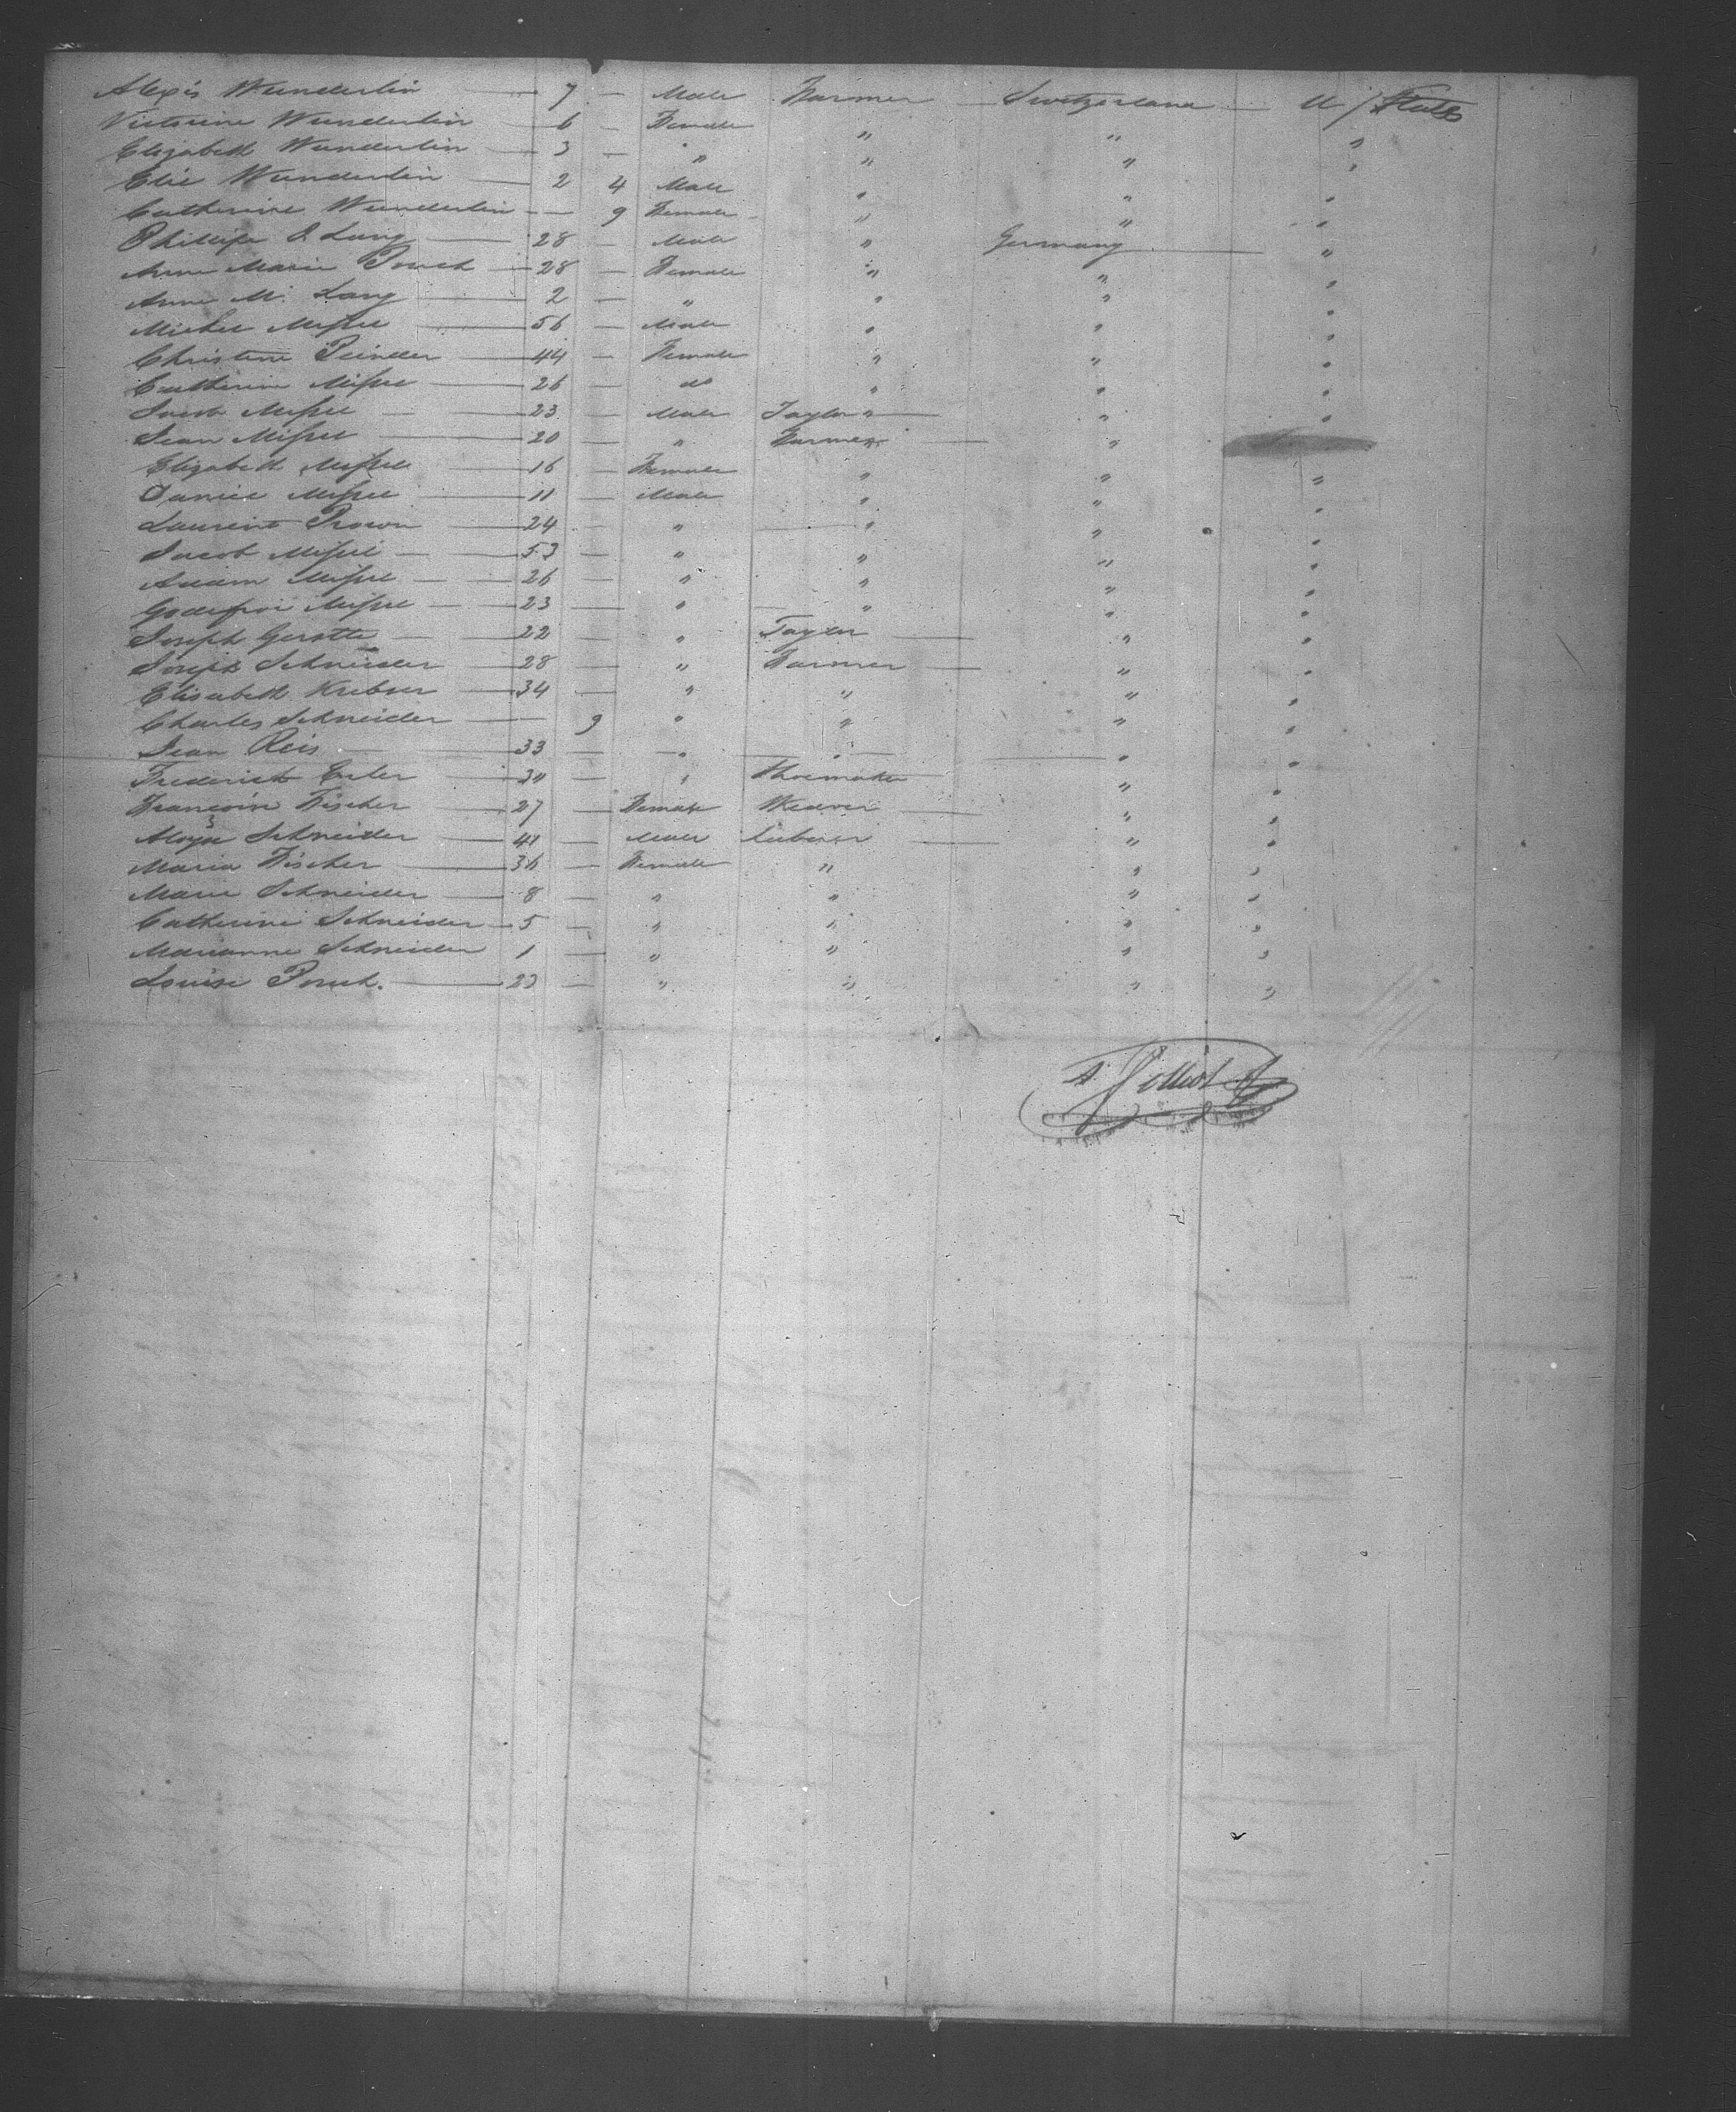 Alexis Wunderlin — 7 — Male Farmer — Switzerland — U / States
Victorine Wunderlin — 6 — Female " " "
Elizabeth Wunderlin — 3 — " " " "
Elie Wunderlin — 2 4 Male " " "
Catherine Wunderlin — — 9 Female " " "
Phillipe J. Lang — 28 — Male " Germany — "
Anne Marie — 28 — Female " " "
Anne M. Lang — 2 — " " " "
Michel — 56 — Male " " "
Christine — 44 — Female " " "
Catherine — 26 — do " " "
Jacob — 23 — Male Taylor " — " "
Jean — 20 — " Farmer — "
Elizabeth — 16 — Female " " "
Daniel — 11 — Male " " "
Laurent — 24 — " — " " "
Jacob — 53 — " " " "
Adam — 26 — " " " "
— 23 — " — " " "
Joseph Gerotte — 22 — " Taylor — " "
Joseph Schneider — 28 — " Farmer — " "
Elisabeth — 34 — " " " "
Charles Schneider — 9 " " " "
Jean Reis — 33 — — " — " — " "
Frederick — — " Shoemaker — " "
Fischer — 27 — Female Weaver — " "
Schneider — 41 — Male Laborer — " "
Maria Fischer — 36 — Female " " "
Marie Schneider — 8 — " " " "
Catherine Schneider — 5 — " " " "
Marianne Schneider 1 — " " " "
Louise — 23 — " " " "